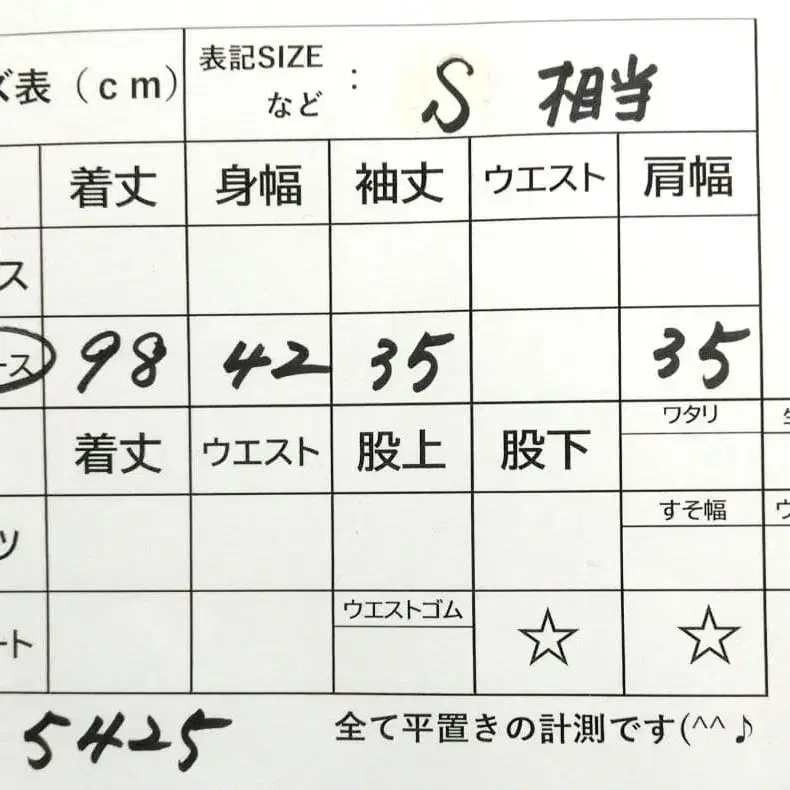 ズ表（ｃｍ） 表記SIZE など : S 相当
着丈 身幅 袖丈 ウエスト 肩幅
ス
ース 98 42 35 35
着丈 ウエスト 股上 股下 ワタリ
ツ すそ幅 ウ
ート ウエストゴム ☆ ☆
5425 全て平置きの計測です(^^♪